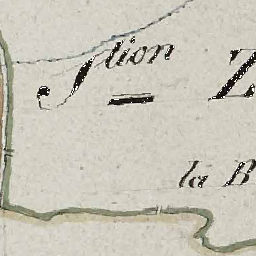 S.tion Z
la B